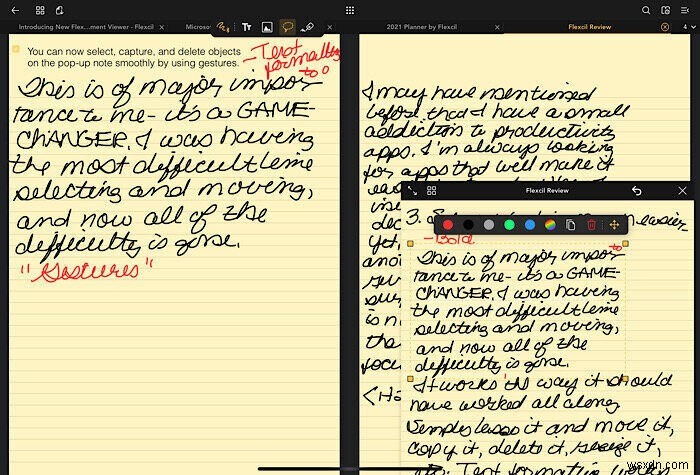 Introducing New Flex...ment Viewer - Flexcil
Microso
Tт
2021 Planner by Flexcil
Flexcil Review
4
You can now select, capture, and delete objects
on the pop-up note smoothly by using gestures.
- Text
formatting
too
This is of major impor
tance to me- it's a GAME-
CHANGER. I was having
the most difficult time
selecting and moving,
and now all of the
difficulty is gone.
"Gestures"
I may have mentioned
before that I have a small
addiction to productivity
apps. I'm always looking
for apps that will make it
Flexcil Review
3.
easier
- Bold
to
This is of major impor
tance to me- it's a GAME-
CHANGER. I was having
the most difficult time
selecting and moving,
and now all of the
difficulty is gone.
It works the way it should
have worked all along
Simply lasso it and move it,
copy it, delete it, resize it,
etc. Text formatting works
wsxdn.com